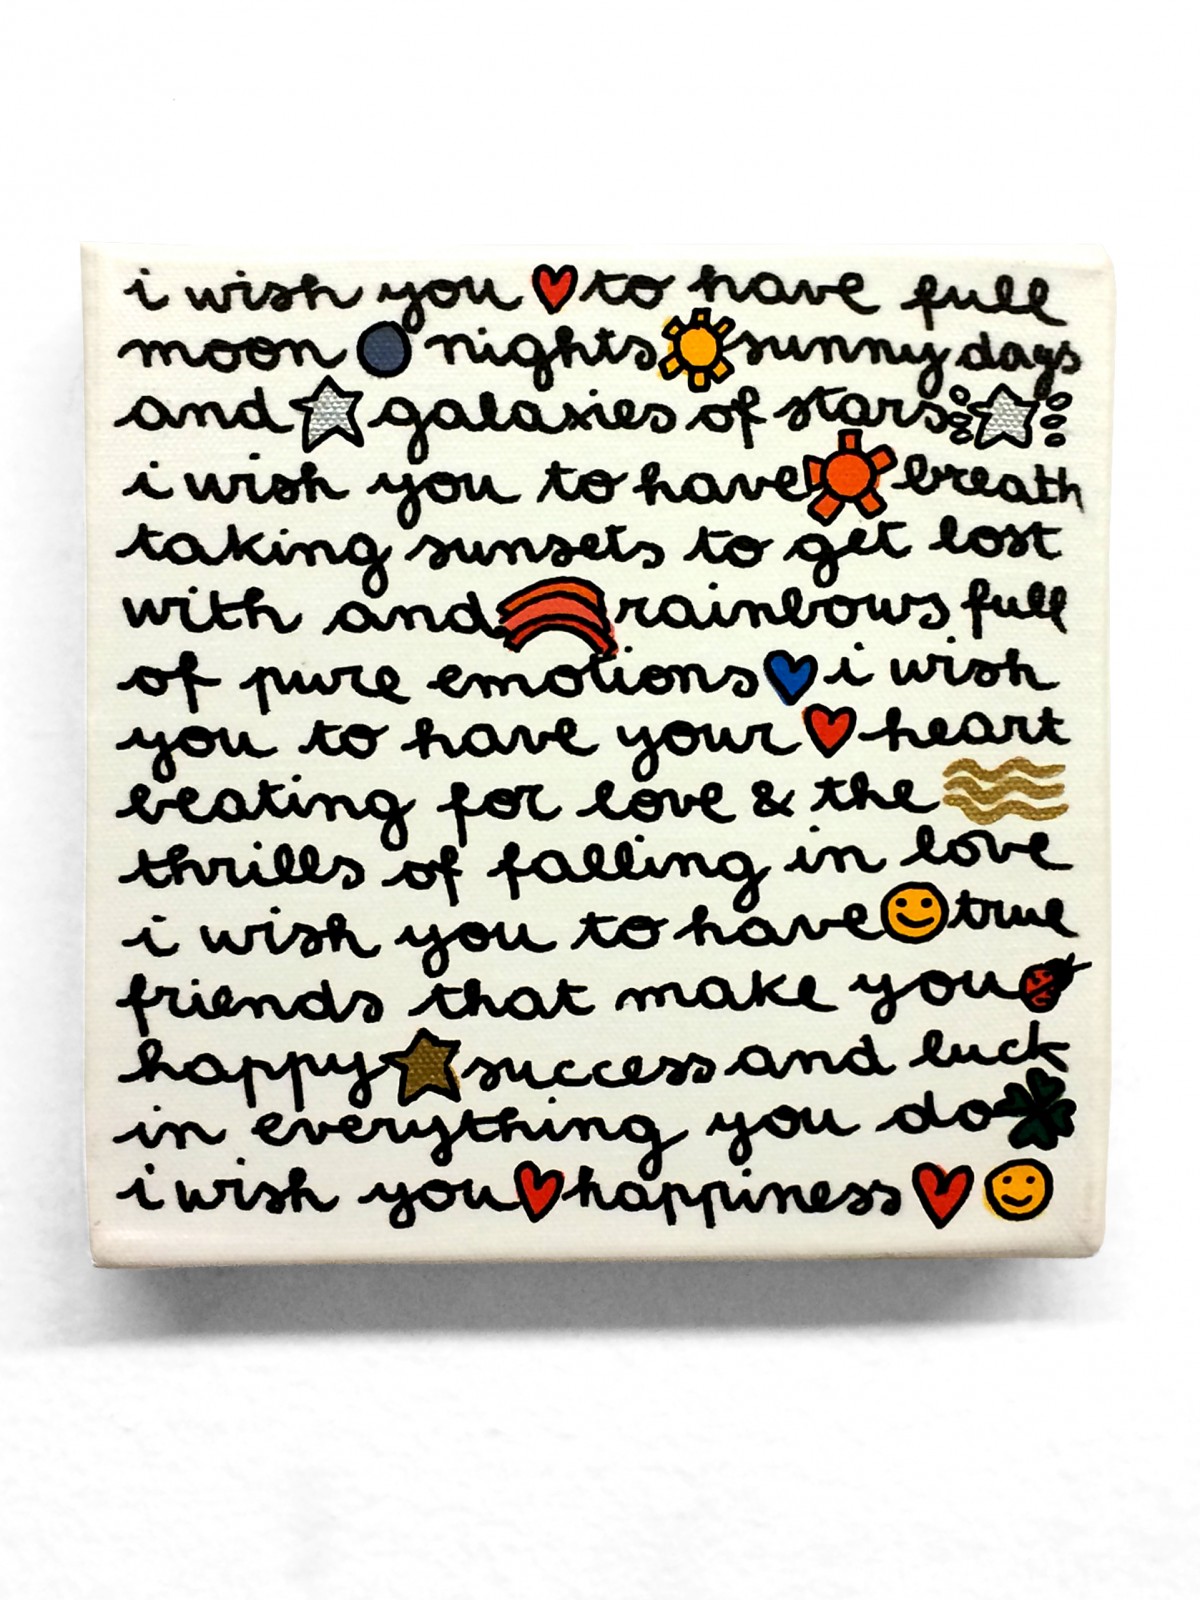 i wish you to have full
moon nights sunny days
and galaxies of stars
i wish you to have breath
taking sunsets to get lost
with and rainbows full
of pure emotions i wish
you to have your heart
beating for love & the
thrills of falling in love
i wish you to have true
friends that make you
happy success and luck
in everything you do
i wish you happiness